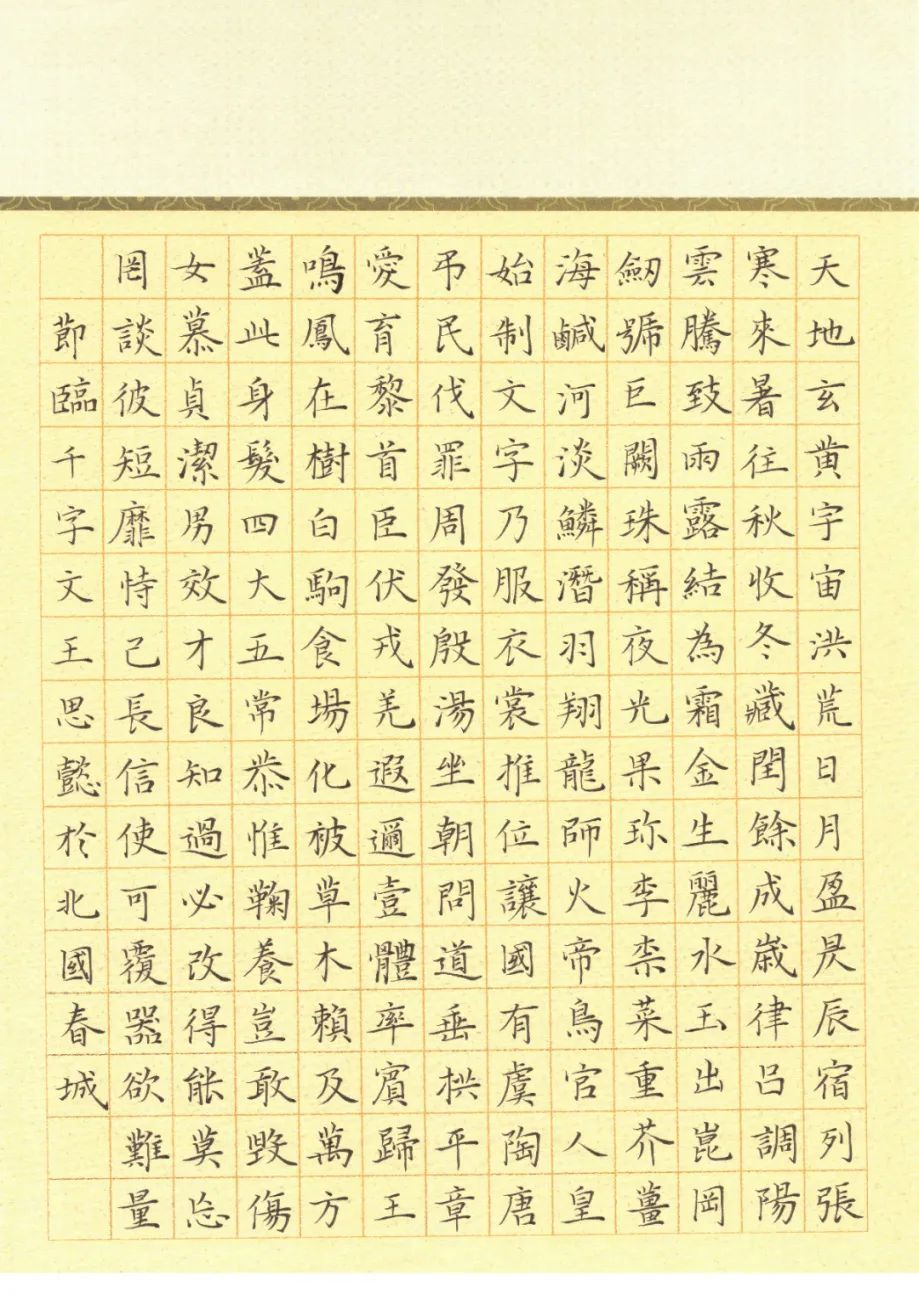 天地玄黄宇宙洪荒日月盈昃辰宿列張
寒來暑往秋收冬藏閏餘成歲律吕調陽
雲騰致雨露結為霜金生麗水玉出崑岡
劒號巨闕珠稱夜光果珎李柰菜重芥薑
海鹹河淡鱗潛羽翔龍師火帝鳥官人皇
始制文字乃服衣裳推位讓國有虞陶唐
弔民伐罪周發殷湯坐朝問道垂拱平章
愛育黎首臣伏戎羌遐邇壹體率賓歸王
鳴鳳在樹白駒食場化被草木賴及萬方
蓋此身髮四大五常恭惟鞠養豈敢毀傷
女慕貞潔男效才良知過必改得能莫忘
罔談彼短靡恃己長信使可覆器欲難量
節臨千字文王思懿於北國春城